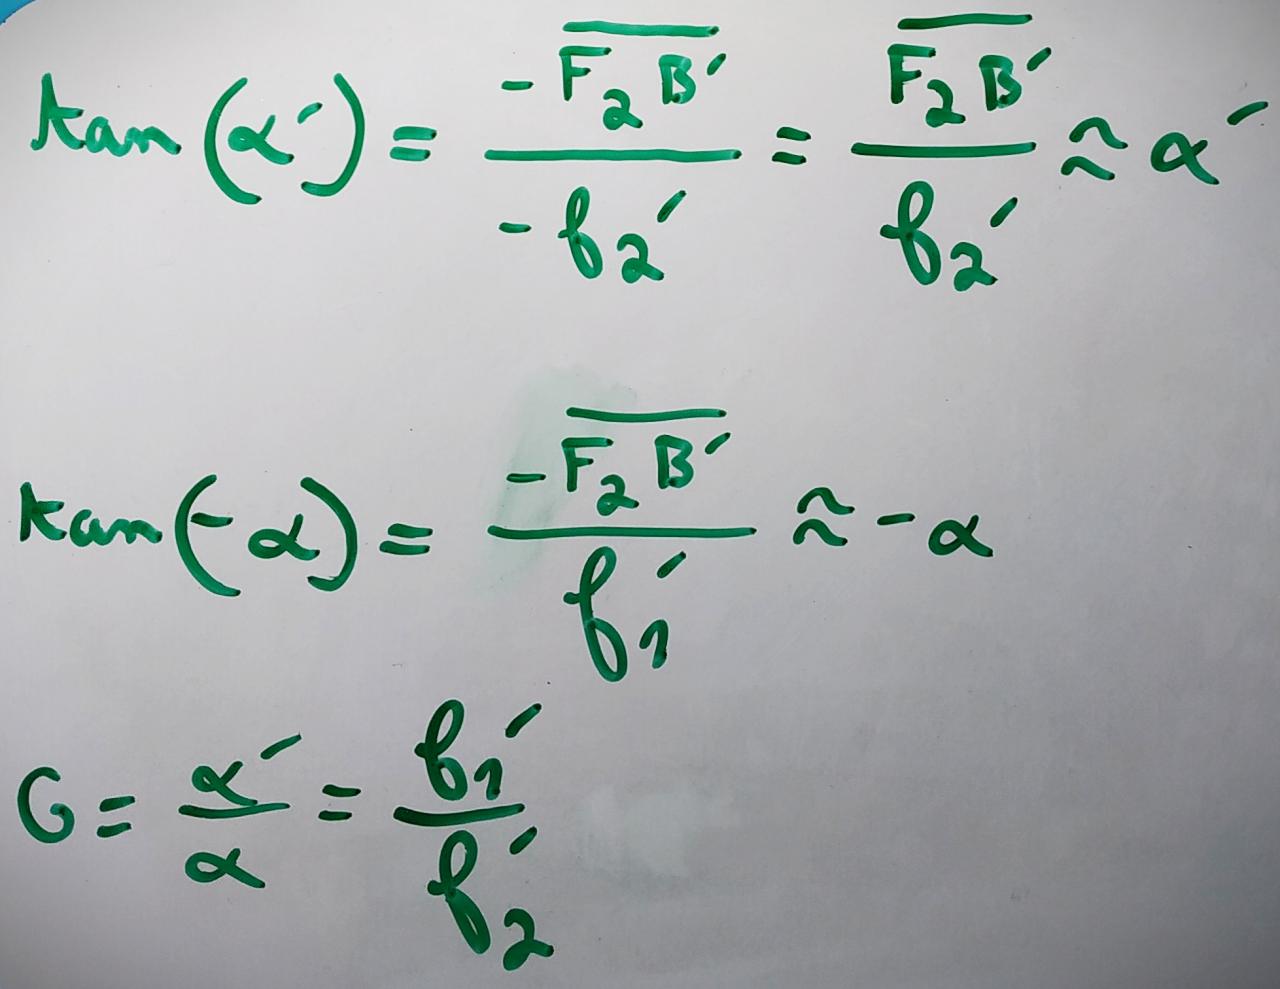 tan(α′) = -F̅₂̅B̅′̅ / -f₂′ = F̅₂̅B̅′̅ / f₂′ ≈ α′
tan(-α) = -F̅₂̅B̅′̅ / f₁′ ≈ -α
G = α′ / α = f₁′ / f₂′